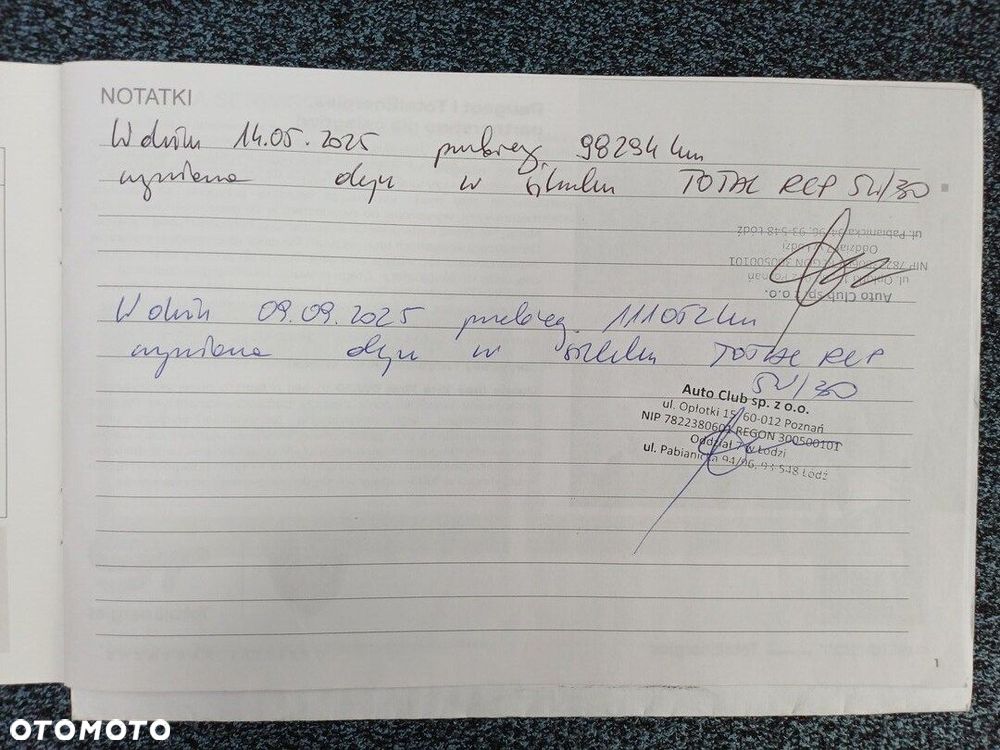 NOTATKI
W dniu 14.05.2025 przebieg 98294 km
wymiana oleju w silniku TOTAL RCP 5W/30
ul. Pabianicka 94/96, 93-548 Łódź
Oddział 7 w Łodzi
NIP 782 REGON 300500101
ul. Poznań
Auto Club sp. z o.o.
W dniu 09.09.2025 przebieg 111052 km
wymiana oleju w silniku TOTAL RCP
5W/30
Auto Club sp. z o.o.
ul. Opłotki 15, 60-012 Poznań
NIP 7822380601 REGON 300500101
Oddział 7 w Łodzi
ul. Pabianicka 94/96, 93-548 Łódź
1
OTOMOTO